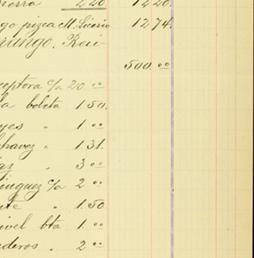 ierra 220 1220.
go pizca M. Licario 1274.
Domingo. Reci-
500.00
ceptora c/a 20 00
la boleta 1 50.
yes " 1 00
chavez " 1.31.
az " 3 00
inguez c/a 2 00
nte " 1.50
nivel bta 1.00
ederos " 2 00